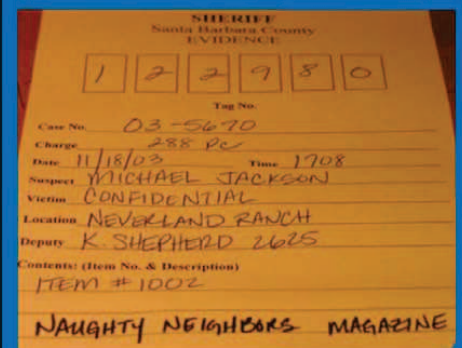 SHERIFF
Santa Barbara County
EVIDENCE
1 2 2 9 8 0
Tag No.
Case No. 03-5670
Charge 288 PC
Date 11/18/03 Time 1708
Suspect MICHAEL JACKSON
Victim CONFIDENTIAL
Location NEVERLAND RANCH
Deputy K. SHEPHERD 2625
Contents: (Item No. & Description)
ITEM #1002
NAUGHTY NEIGHBORS MAGAZINE